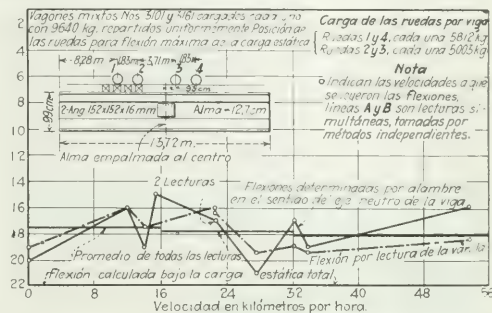 Vagones mixtos Nos 3101 y 3161 cargados cada uno
con 9640 kg. repartidos uniformemente Posición de
las ruedas para flexión máxima de la carga estática
Carga de las ruedas por viga
Ruedas 1 y 4, cada una 5812 kg
Ruedas 2 y 3, cada una 5003 kg
Nota
o Indican las velocidades a que
se leyeron las flexiones,
líneas A y B son lecturas si-
multáneas, tomadas por
métodos independientes.
8,28 m.
1,83 m
3,71 m
1,83
1 2 3 4
93 cm
99 cm
2-Ang. 152x152x16 mm
Alma = 12,7 cm
13,72 m.
Alma empalmada al centro
2 Lecturas
Flexiones determinadas por alambre
en el sentido del eje neutro de la viga
Promedio de todas las lecturas
Flexión por lectura de la varilla
Flexión calculada bajo la carga estática total
2
4
6
8
10
12
14
16
18
20
22
0 8 16 24 32 40 48 55
Velocidad en kilómetros por hora.